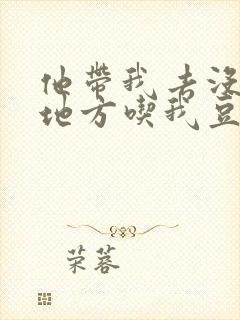 他带我去没
地方喫我豆
荣蓉